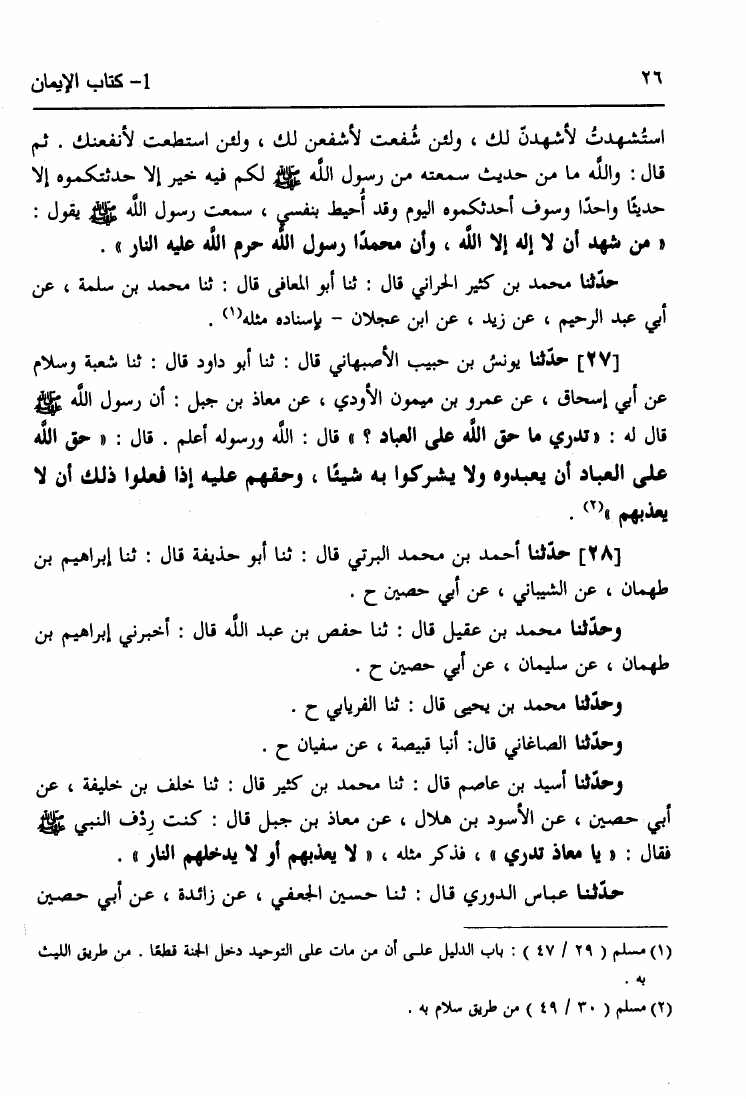 ٢٦
1- كتاب الإيمان
استُشهدتُ لأشهدنّ لك ، ولئن شُفعت لأشفعن لك ، ولئن استطعت لأنفعنك . ثم
قال : والله ما من حديث سمعته من رسول الله ﷺ لكم فيه خير إلا حدثتكموه إلا
حديثًا واحدًا وسوف أحدثكموه اليوم وقد أُحيط بنفسي ، سمعت رسول الله ﷺ يقول :
« من شهد أن لا إله إلا الله ، وأن محمدًا رسول الله حرم الله عليه النار » .
حدّثنا محمد بن كثير الحراني قال : ثنا أبو المعافى قال : ثنا محمد بن سلمة ، عن
أبي عبد الرحيم ، عن زيد ، عن ابن عجلان – بإسناده مثله(١) .
[٢٧] حدّثنا يونسُ بن حبيب الأصبهاني قال : ثنا أبو داود قال : ثنا شعبة وسلام
عن أبي إسحاق ، عن عمرو بن ميمون الأودي ، عن معاذ بن جبل : أن رسول الله ﷺ
قال له : « تدري ما حق الله على العباد ؟ » قال : الله ورسوله أعلم . قال : « حق الله
على العباد أن يعبدوه ولا يشركوا به شيئًا ، وحقهم عليه إذا فعلوا ذلك أن لا
يعذبهم »(٢) .
[٢٨] حدّثنا أحمد بن محمد البرتي قال : ثنا أبو حذيفة قال : ثنا إبراهيم بن
طهمان ، عن الشيباني ، عن أبي حصين ح .
وحدّثنا محمد بن عقيل قال : ثنا حفص بن عبد الله قال : أخبرني إبراهيم بن
طهمان ، عن سليمان ، عن أبي حصين ح .
وحدّثنا محمد بن يحيى قال : ثنا الفريابي ح .
وحدّثنا الصاغاني قال: أنبا قبيصة ، عن سفيان ح .
وحدّثنا أسيد بن عاصم قال : ثنا محمد بن كثير قال : ثنا خلف بن خليفة ، عن
أبي حصين ، عن الأسود بن هلال ، عن معاذ بن جبل قال : كنت رِدْف النبي ﷺ
فقال : « يا معاذ تدري » ، فذكر مثله ، « لا يعذبهم أو لا يدخلهم النار » .
حدّثنا عباس الدوري قال : ثنا حسين الجعفي ، عن زائدة ، عن أبي حصين
(١) مسلم ( ٢٩ / ٤٧ ) : باب الدليل على أن من مات على التوحيد دخل الجنة قطعًا . من طريق الليث
به .
(٢) مسلم ( ٣٠ / ٤٩ ) من طريق سلام به .